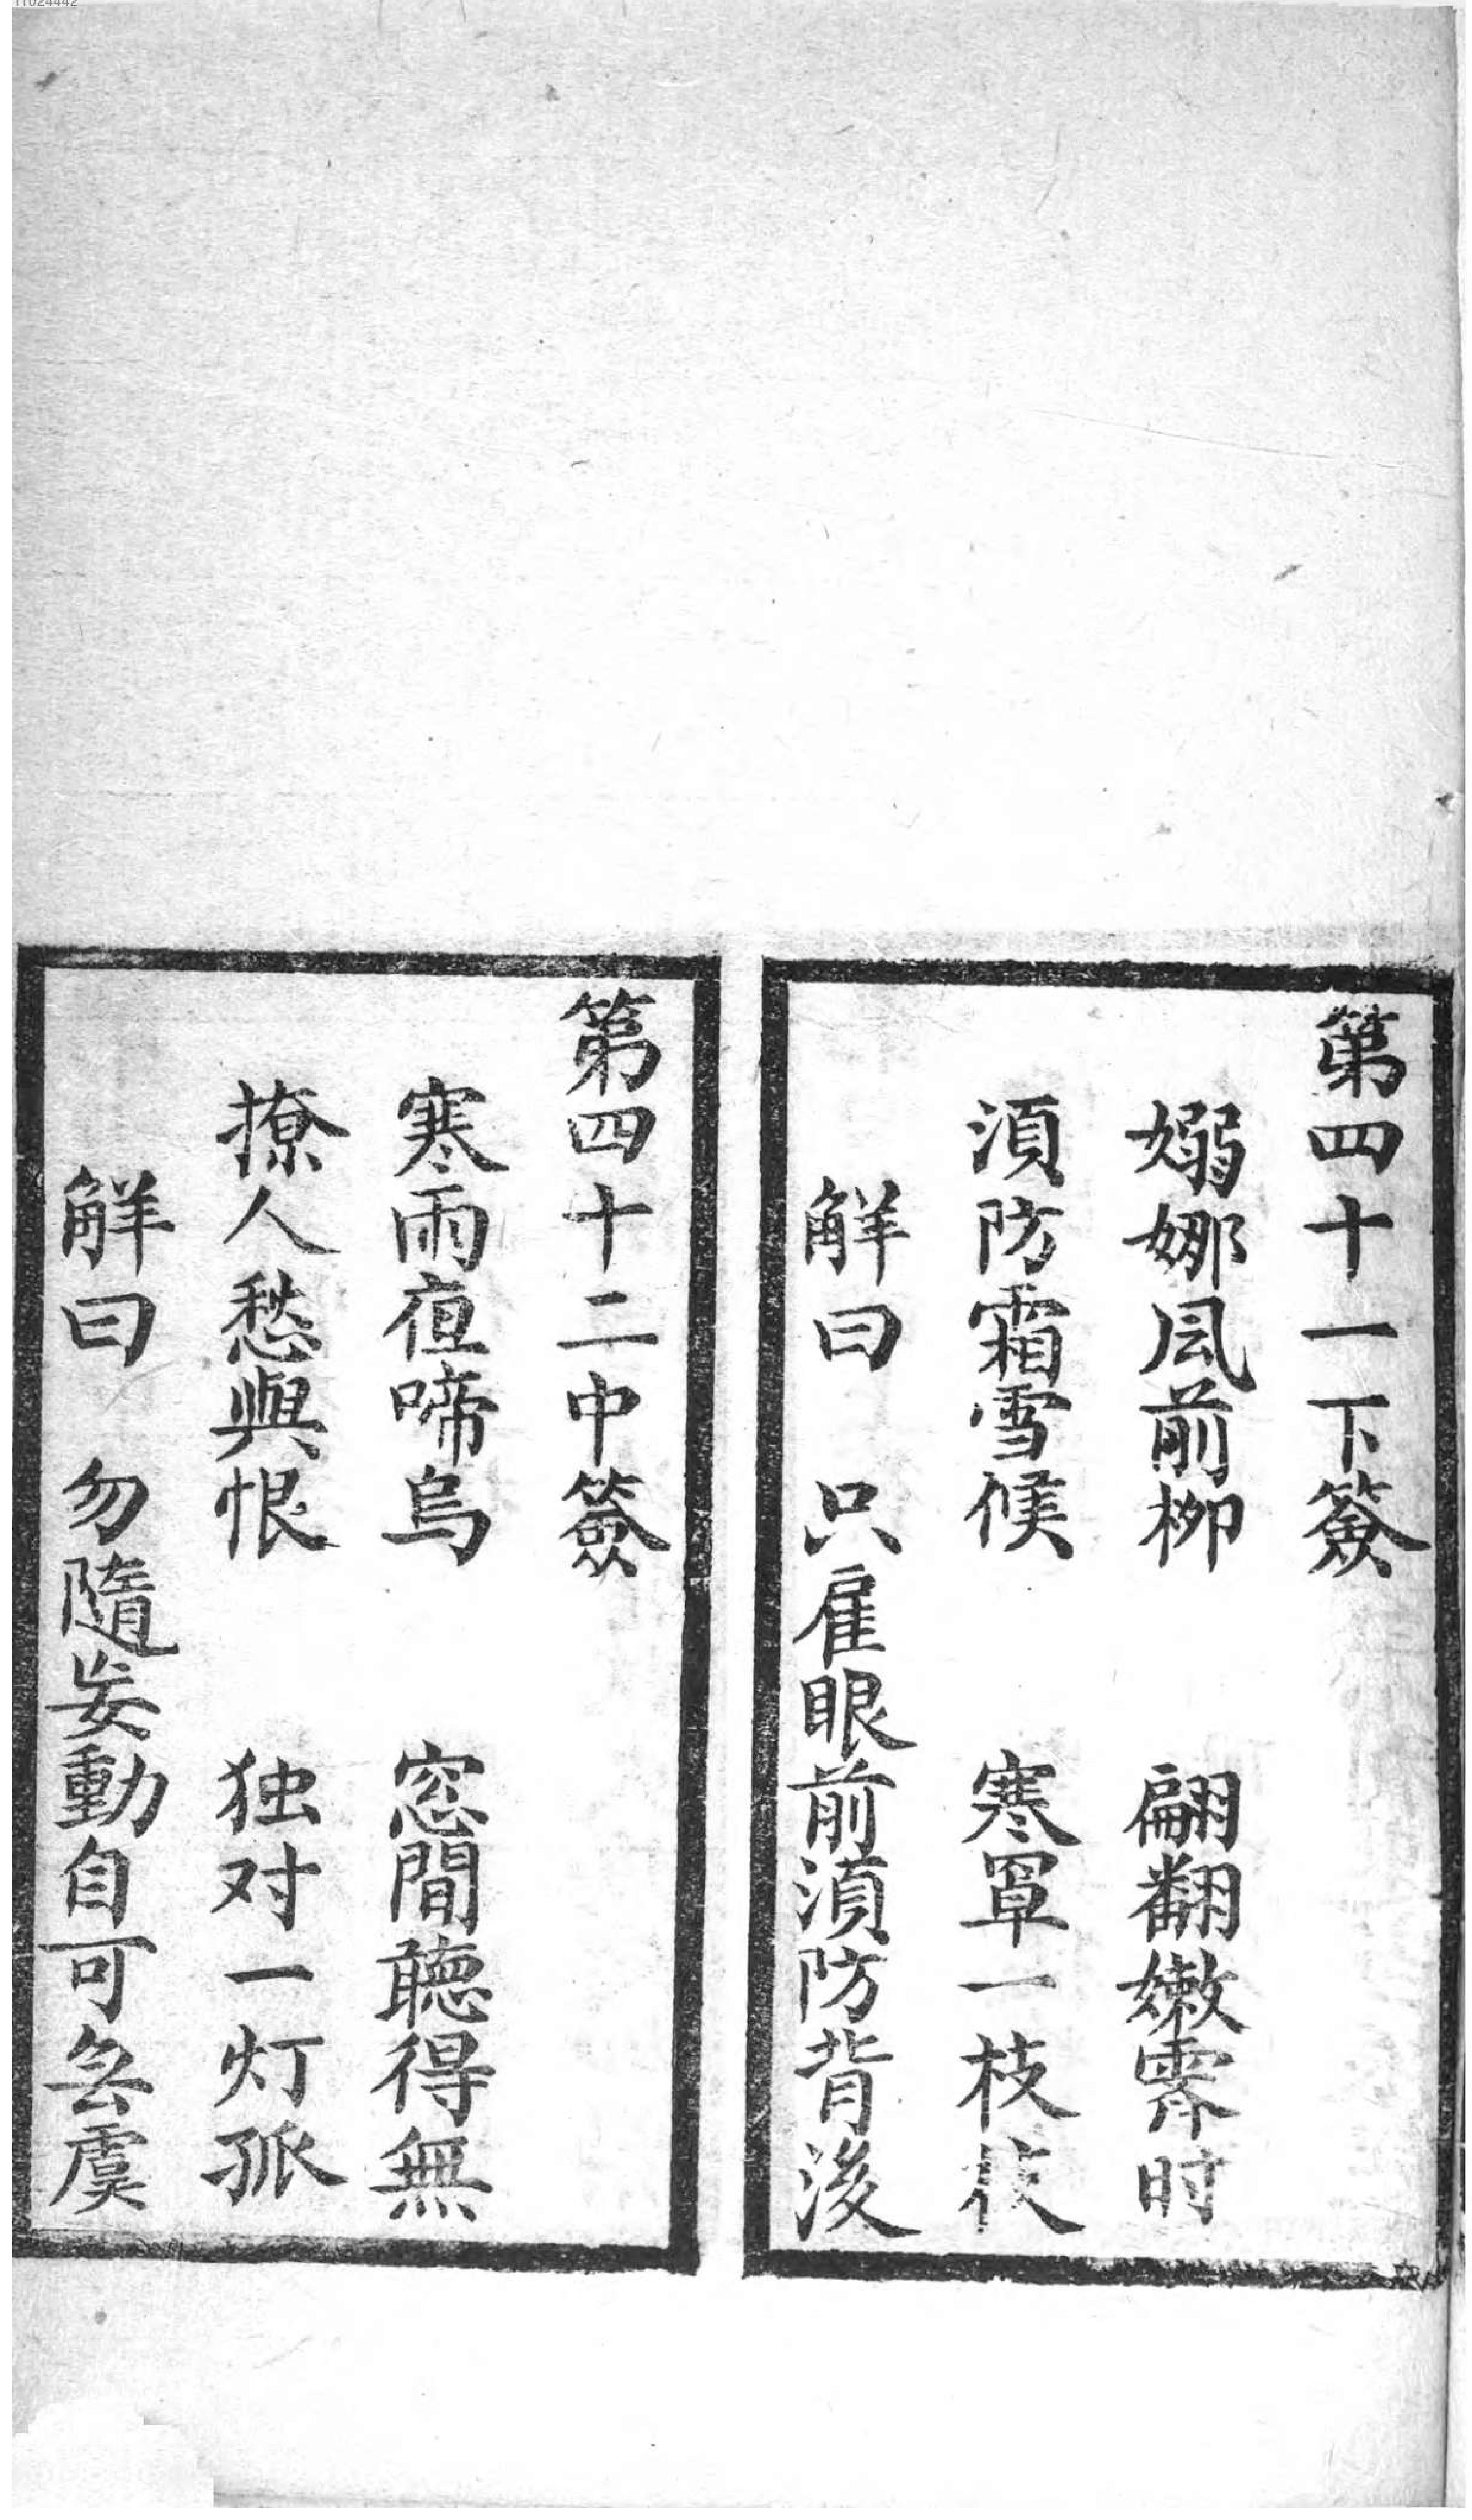 11024442
第四十一下簽
嫋娜风前柳　翩翻嫩霽时
湏防霜雪候　寒罩一枝枝
觧曰　只雇眼前湏防背後
第四十二中簽
寒雨夜啼烏　窓間聽得無
撩人愁與恨　独对一灯孤
觧曰　勿隨妄動自可無虞